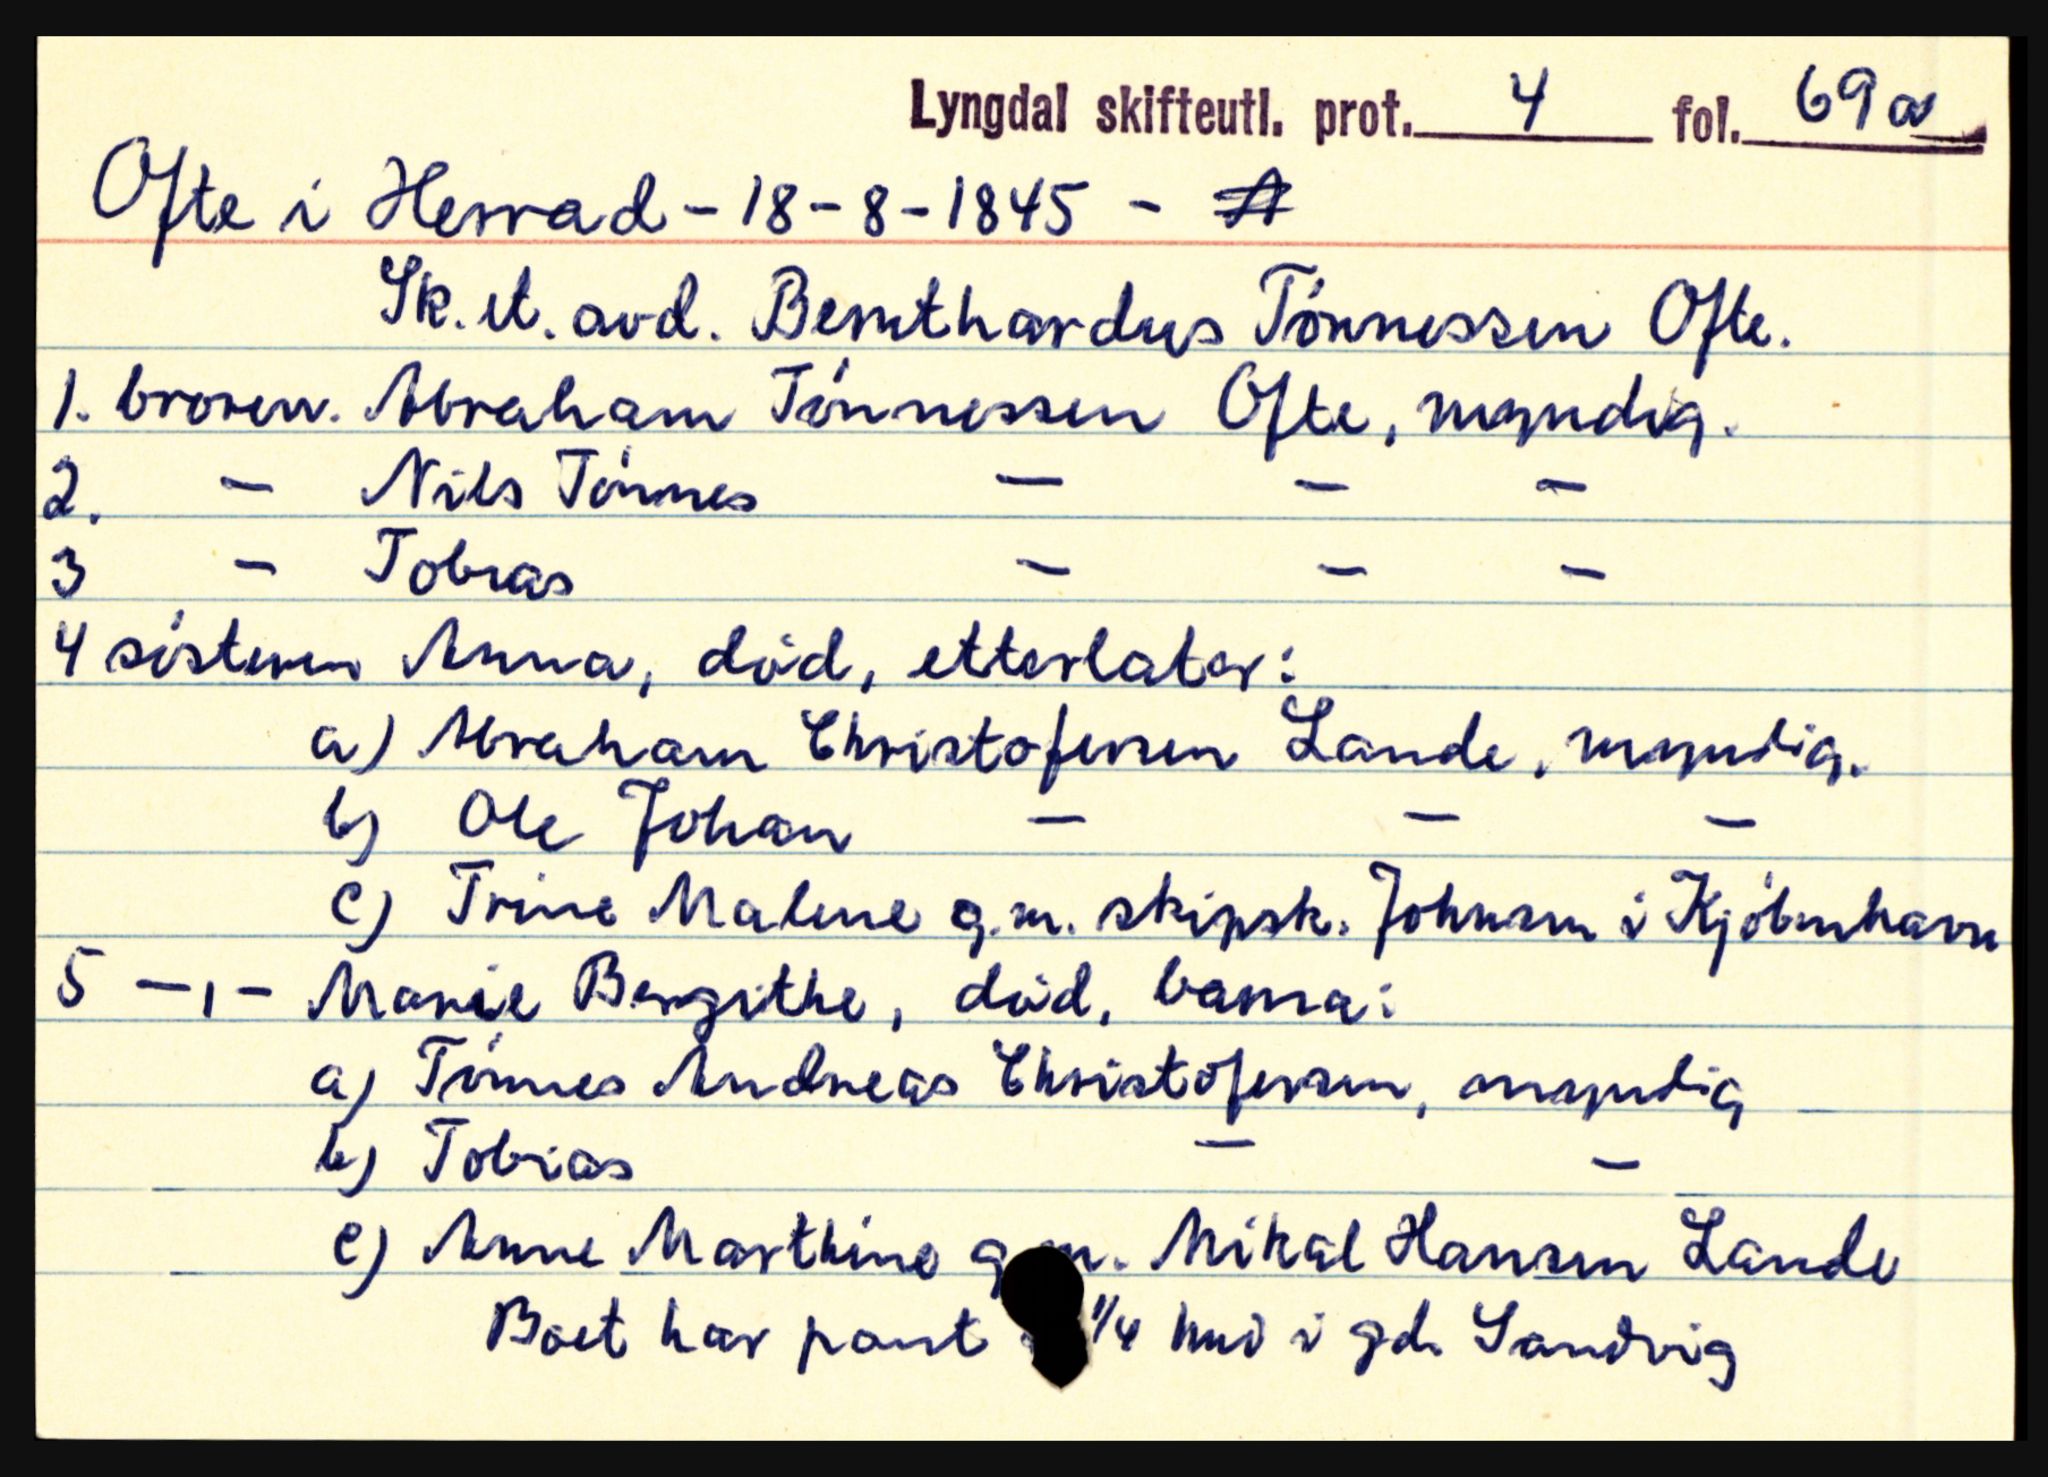 Lyngdal skifteutl. prot. 4 fol. 69a
Ofte i Herrad - 18-8-1845 -
Sk. et. avd. Bernthardus Tónnessen Ofte.
1. broren. Abraham Tónnessen Ofte, myndig.
2. - Nils Tónnes - - -
3 - Tobias - - -
4 sósteren Anna, død, etterlater:
a) Abraham Christofersen Lande, myndig.
b) Ole Johan - - -
c) Trine Malene g.m. skipsk. Johnsen i Kjóbenhavn
5 -,- Marie Bergithe, død, barna:
a) Tónnes Andreas Christofersen, myndig
b) Tobias - -
c) Anne Marthine g.m. Mikal Hansen Lande
Boet har pant 1/4 hud i gd. Sandvig